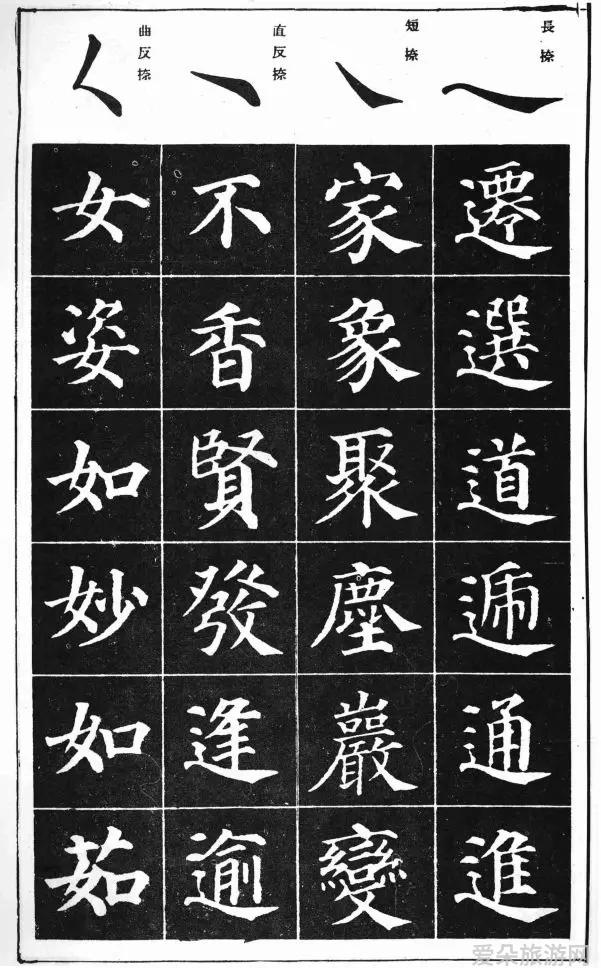 長捺
遷
選
道
遞
通
進
短捺
家
象
聚
塵
巖
變
直反捺
不
香
賢
發
逢
逾
曲反捺
女
姿
如
妙
如
茹
爱朵旅游网